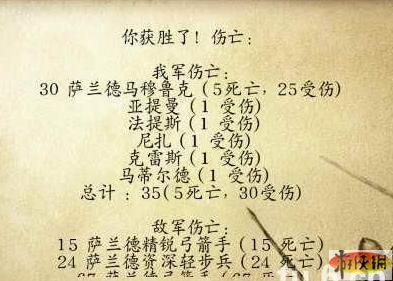 你获胜了! 伤亡:
我军伤亡:
30 萨兰德马穆鲁克 (5死亡, 25受伤)
亚提曼 (1 受伤)
法提斯 (1 受伤)
尼扎 (1 受伤)
克雷斯 (1 受伤)
马蒂尔德 (1 受伤)
总计 : 35(5死亡, 30受伤)
敌军伤亡:
15 萨兰德精锐弓箭手 (15 死亡)
24 萨兰德资深轻步兵 (24 死亡)
游侠网